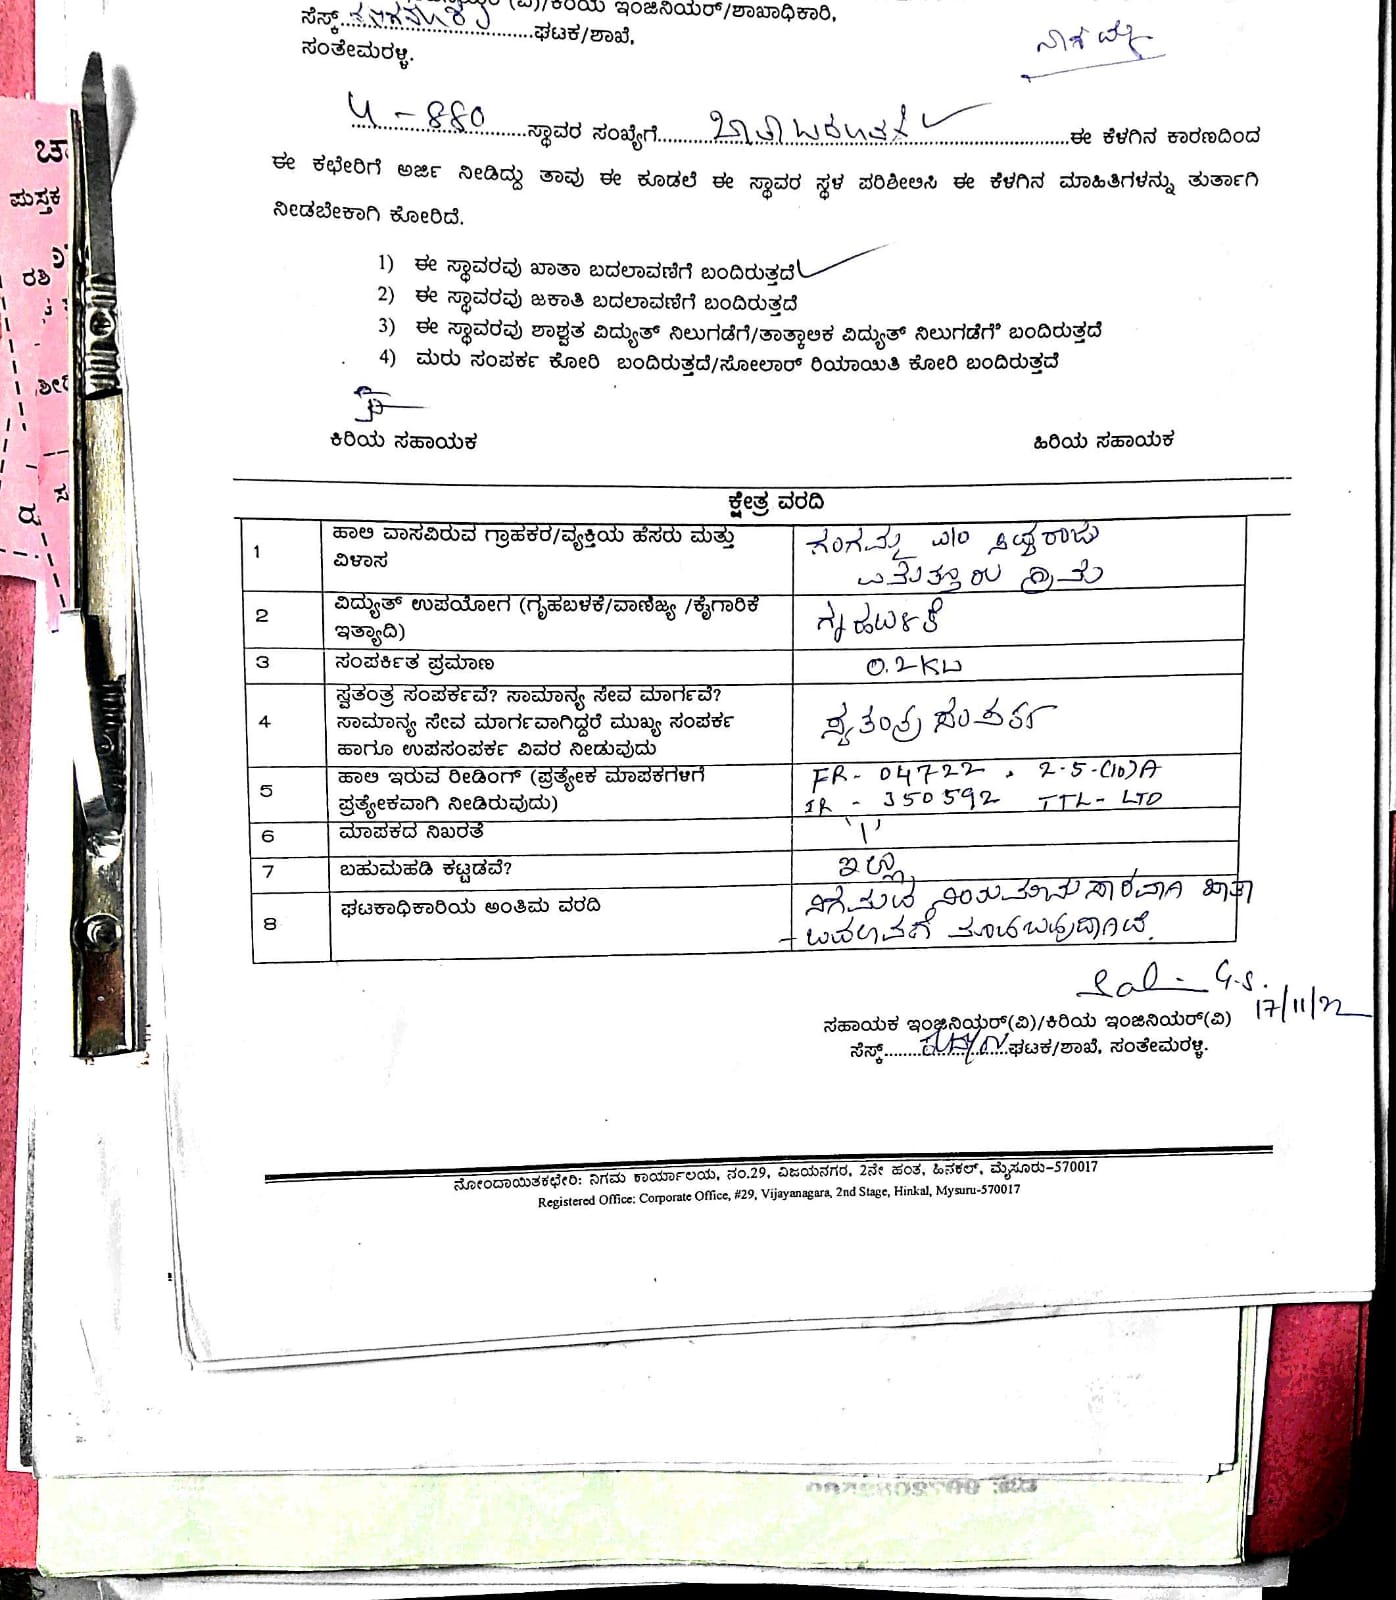 (ವಿ)/ಕಿರಿಯ ಇಂಜಿನಿಯರ್/ಶಾಖಾಧಿಕಾರಿ,
ಸೆಸ್ಕ್....................ಘಟಕ/ಶಾಖೆ,
ಸಂತೇಮರಳ್ಳಿ.
4-880 ಸ್ಥಾವರ ಸಂಖ್ಯೆಗೆ ಖಾತಾ ಬದಲಾವಣೆ ಈ ಕೆಳಗಿನ ಕಾರಣದಿಂದ
ಈ ಕಛೇರಿಗೆ ಅರ್ಜಿ ನೀಡಿದ್ದು ತಾವು ಈ ಕೂಡಲೆ ಈ ಸ್ಥಾವರ ಸ್ಥಳ ಪರಿಶೀಲಿಸಿ ಈ ಕೆಳಗಿನ ಮಾಹಿತಿಗಳನ್ನು ತುರ್ತಾಗಿ
ನೀಡಬೇಕಾಗಿ ಕೋರಿದೆ.
1) ಈ ಸ್ಥಾವರವು ಖಾತಾ ಬದಲಾವಣೆಗೆ ಬಂದಿರುತ್ತದೆ
2) ಈ ಸ್ಥಾವರವು ಜಕಾತಿ ಬದಲಾವಣೆಗೆ ಬಂದಿರುತ್ತದೆ
3) ಈ ಸ್ಥಾವರವು ಶಾಶ್ವತ ವಿದ್ಯುತ್ ನಿಲುಗಡೆಗೆ/ತಾತ್ಕಾಲಿಕ ವಿದ್ಯುತ್ ನಿಲುಗಡೆಗೆ ಬಂದಿರುತ್ತದೆ
4) ಮರು ಸಂಪರ್ಕ ಕೋರಿ ಬಂದಿರುತ್ತದೆ/ಸೋಲಾರ್ ರಿಯಾಯಿತಿ ಕೋರಿ ಬಂದಿರುತ್ತದೆ
ಕಿರಿಯ ಸಹಾಯಕ ಹಿರಿಯ ಸಹಾಯಕ
ಕ್ಷೇತ್ರ ವರದಿ
1 ಹಾಲಿ ವಾಸವಿರುವ ಗ್ರಾಹಕರ/ವ್ಯಕ್ತಿಯ ಹೆಸರು ಮತ್ತು ಗಂಗಮ್ಮ W/O ಸಿದ್ದರಾಜು
ವಿಳಾಸ ಗ್ರಾಮ
2 ವಿದ್ಯುತ್ ಉಪಯೋಗ (ಗೃಹಬಳಕೆ/ವಾಣಿಜ್ಯ /ಕೈಗಾರಿಕೆ ಗೃಹಬಳಕೆ
ಇತ್ಯಾದಿ)
3 ಸಂಪರ್ಕಿತ ಪ್ರಮಾಣ 0.2KW
4 ಸ್ವತಂತ್ರ ಸಂಪರ್ಕವೆ? ಸಾಮಾನ್ಯ ಸೇವ ಮಾರ್ಗವೆ? ಸ್ವತಂತ್ರ ಸಂಪರ್ಕ
ಸಾಮಾನ್ಯ ಸೇವ ಮಾರ್ಗವಾಗಿದ್ದರೆ ಮುಖ್ಯ ಸಂಪರ್ಕ
ಹಾಗೂ ಉಪಸಂಪರ್ಕ ವಿವರ ನೀಡುವುದು
5 ಹಾಲಿ ಇರುವ ರೀಡಿಂಗ್ (ಪ್ರತ್ಯೇಕ ಮಾಪಕಗಳಿಗೆ FR- 04722, 2.5-(10)A
ಪ್ರತ್ಯೇಕವಾಗಿ ನೀಡಿರುವುದು) 350592 TTL-LTD
6 ಮಾಪಕದ ನಿಖರತೆ '1'
7 ಬಹುಮಹಡಿ ಕಟ್ಟಡವೆ? ಇಲ್ಲ
8 ಘಟಕಾಧಿಕಾರಿಯ ಅಂತಿಮ ವರದಿ ನಿಗಮದ ನಿಯಮಾನುಸಾರವಾಗಿ ಖಾತಾ
ಬದಲಾವಣೆಗೆ
17/11/22
ಸಹಾಯಕ ಇಂಜಿನಿಯರ್(ವಿ)/ಕಿರಿಯ ಇಂಜಿನಿಯರ್(ವಿ)
ಸೆಸ್ಕ್....................ಘಟಕ/ಶಾಖೆ, ಸಂತೇಮರಳ್ಳಿ.
ನೋಂದಾಯಿತಕಛೇರಿ: ನಿಗಮ ಕಾರ್ಯಾಲಯ, ನಂ.29, ವಿಜಯನಗರ, 2ನೇ ಹಂತ, ಹಿನಕಲ್, ಮೈಸೂರು-570017
Registered Office: Corporate Office, #29, Vijayanagara, 2nd Stage, Hinkal, Mysuru-570017
ಪುಸ್ತಕ